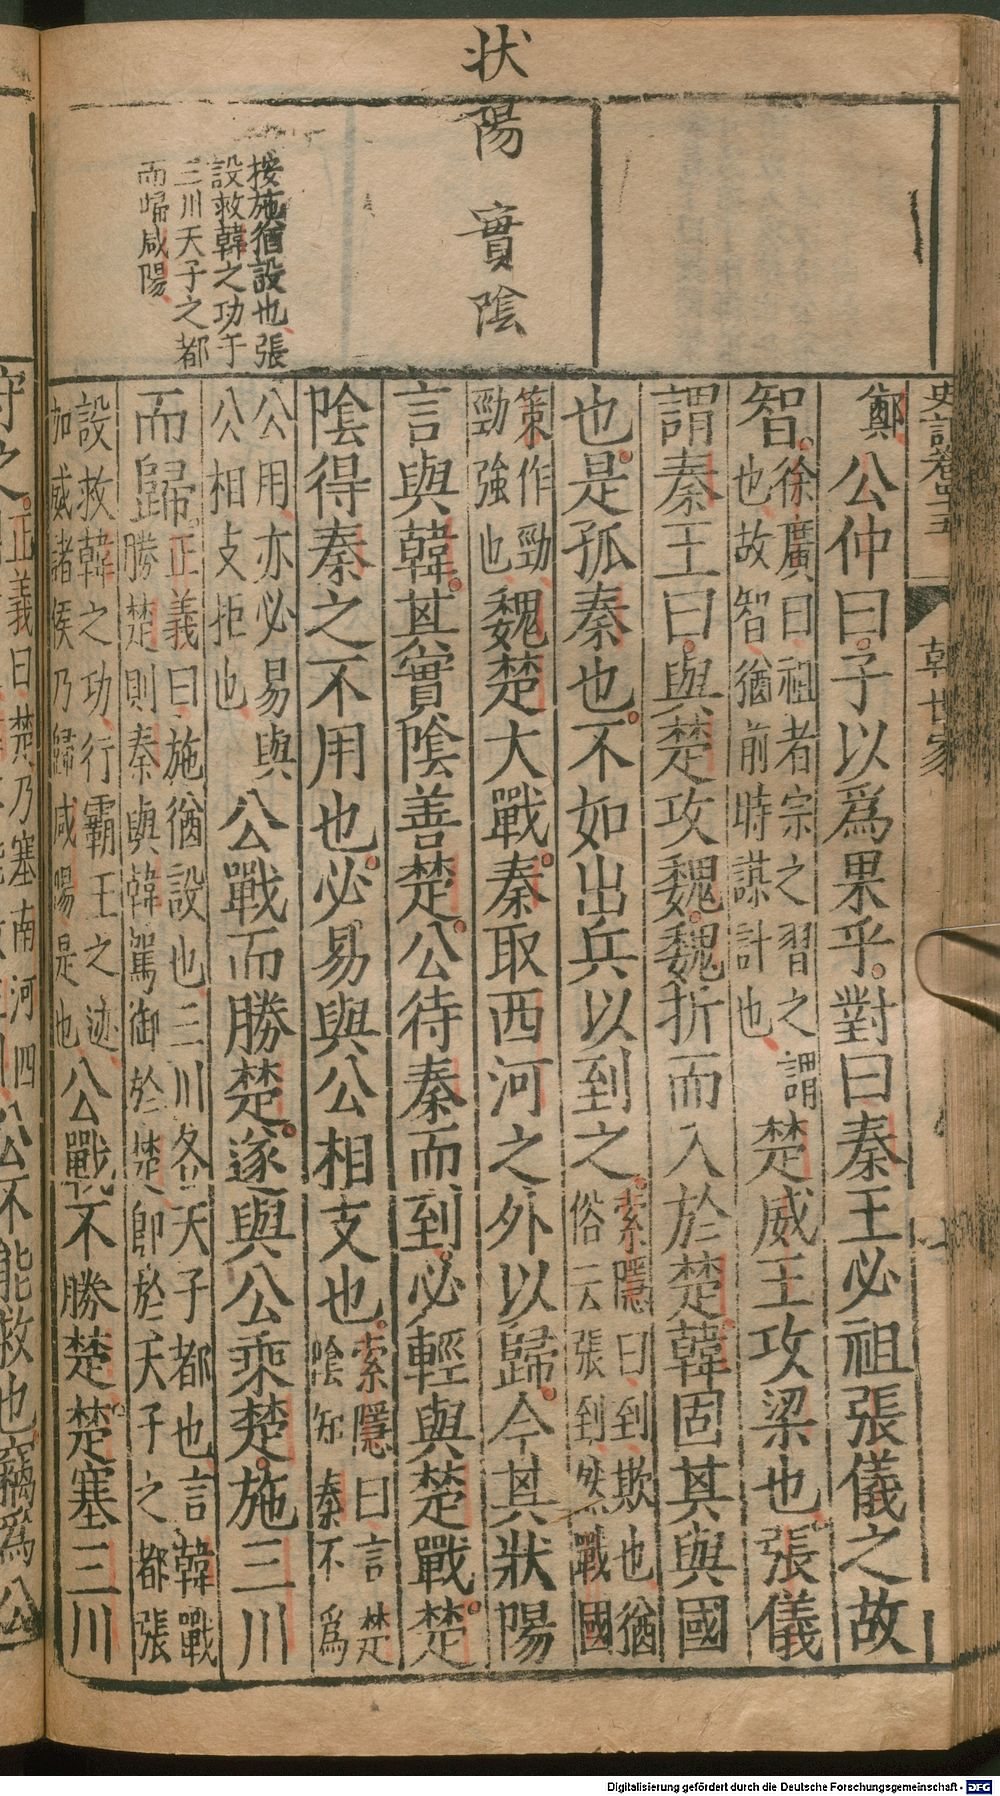 状
陽
實
陰
按施猶設也張
設救韓之功于
三川天子之都
而歸咸陽
史記卷四十五
韓世家
鄭公仲曰子以爲果乎對曰秦王必祖張儀之故
智徐廣曰祖者宗之習之謂
也故智猶前時謀計也
楚威王攻梁也張儀
謂秦王曰與楚攻魏魏折而入於楚韓固其與國
也是孤秦也不如出兵以到之索隱曰到欺也猶
俗云張到然戰國
策作勁
勁強也
魏楚大戰秦取西河之外以歸今其狀陽
言與韓其實陰善楚公待秦而到必輕與楚戰楚
陰得秦之不用也必易與公相支也索隱曰言楚
陰知秦不爲
公用亦必易與
公相支拒也
公戰而勝楚遂與公乘楚施三川
而歸正義曰施猶設也三川各天子都也言韓戰
勝楚則秦與韓駕御於楚即於天子之都張
設救韓之功行霸王之迹
加威諸侯乃歸咸陽是也
公戰不勝楚楚塞三川
守之正義曰楚乃塞南河四
公不能救也竊爲公
Digitalisierung gefördert durch die Deutsche Forschungsgemeinschaft - DFG